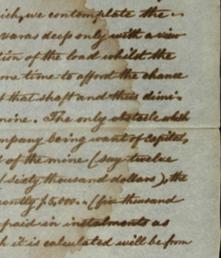 which, we contemplate the
varas deep only with a view
tion of the load whilst the
me time to afford the chance
t that shaft and thus dimi-
mine. The only obstacle which
mpany being want of capital,
t of the mine (say twelve
(sixty thousand dollars), the
uently $5,000 - (five thousand
paid in instalments as
h it is calculated will be from